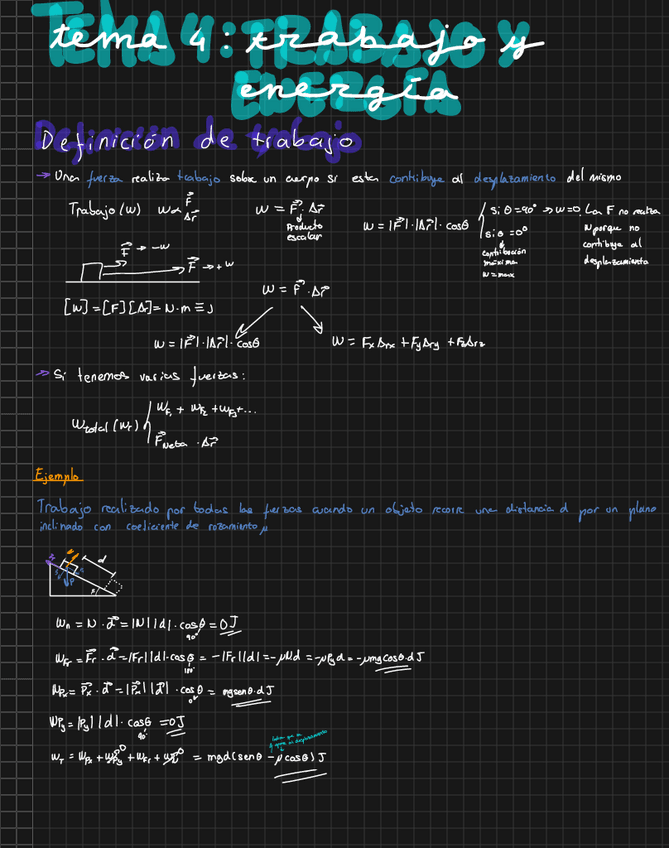 tema 4: trabajo y
energía
Definición de trabajo
→ Una fuerza realiza trabajo sobre un cuerpo si esta contribuye al desplazamiento del mismo
Trabajo (W) W ∝ F⃗ Δr⃗
W = F⃗ · Δr⃗
Producto
escalar
W = |F⃗| · |Δr⃗| · cosθ
si θ = 90° → W = 0, La F no realiza
W porque no
contribuye al
desplazamiento
si θ = 0°
contribución
máxima
W = max
F⃗ → -W
F⃗ → +W
[W] = [F][Δr] = N·m ≡ J
W = F⃗ · Δr⃗
W = |F⃗| · |Δr⃗| · cosθ
W = FxΔrx + FyΔry + FzΔrz
→ Si tenemos varias fuerzas:
Wtotal (WT)
WF1 + WF2 + WF3 + ...
F⃗Neta · Δr⃗
Ejemplo
Trabajo realizado por todas las fuerzas cuando un objeto recorre una distancia d por un plano
inclinado con coeficiente de rozamiento μ
d
Wn = N · d⃗ = |N||d| · cosθ = 0J
90°
WFr = F⃗r · d⃗ = |Fr||d| · cosθ = -|Fr||d| = -μNd = -μPyd = -μmgcosθ·d J
180°
WPx = P⃗x · d⃗ = |P⃗x||d⃗| · cosθ = mgsenθ·d J
0°
WPy = |Py||d| · cosθ = 0J
90°
WT = WPx + WPy + WFr + WN = mgd(senθ - μcosθ) J